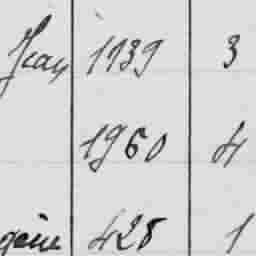 Jean 1139 3
1960 4
428 1